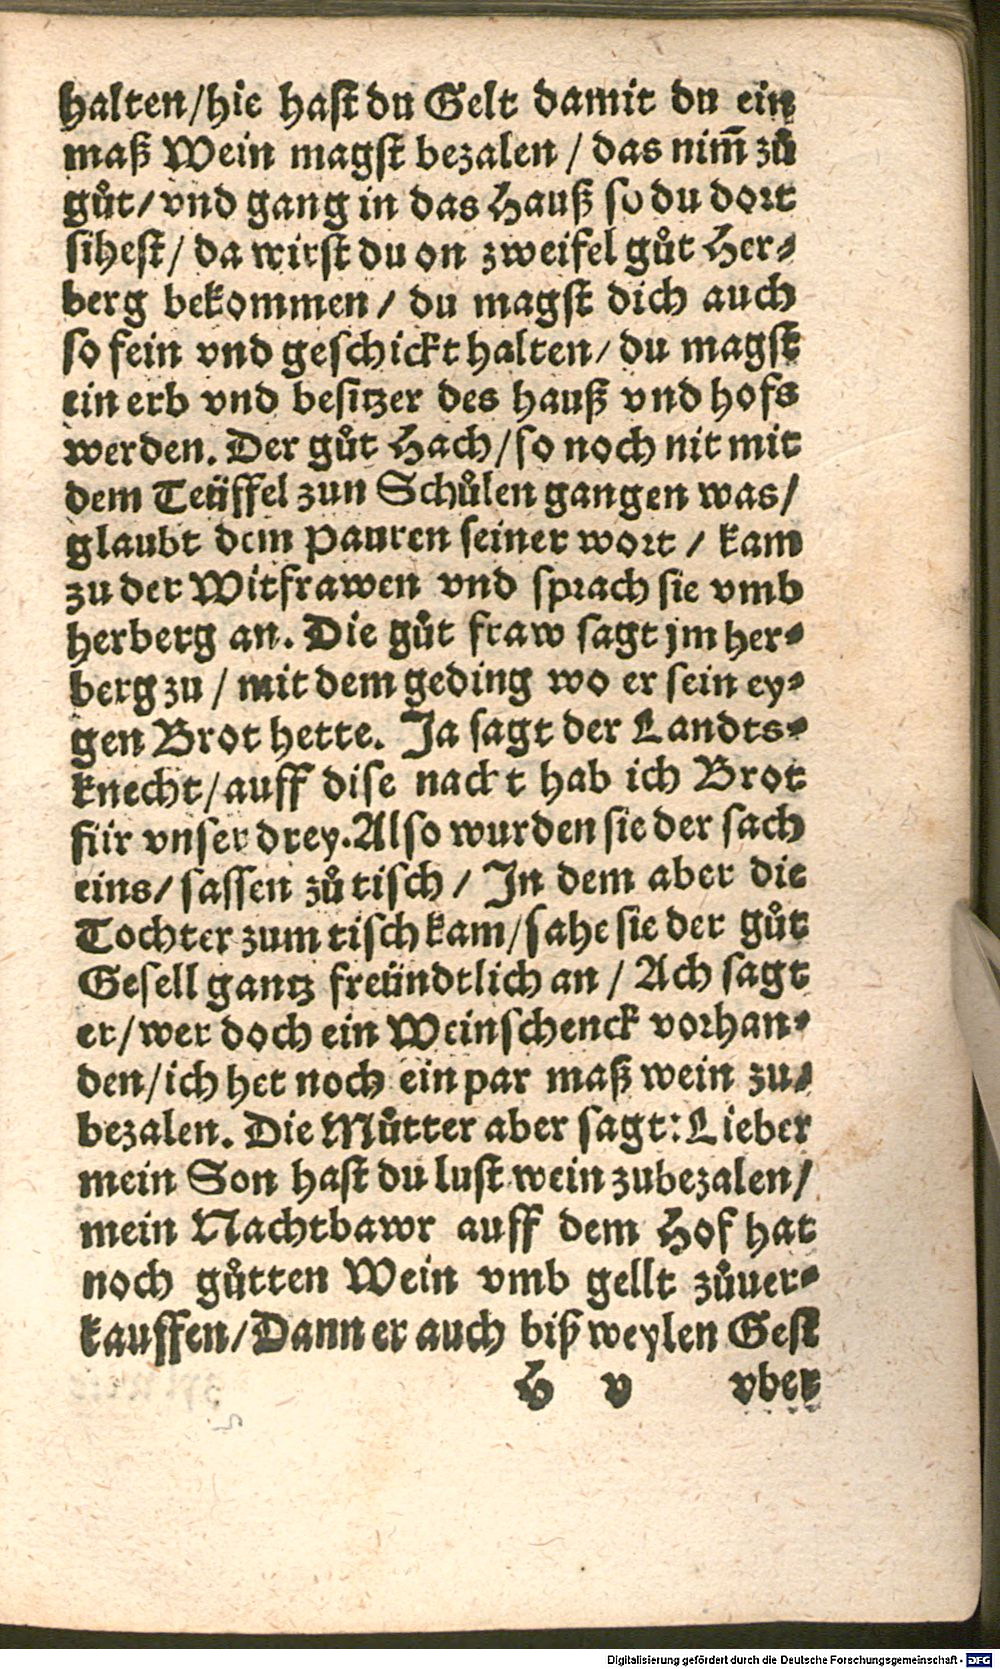 halten/hie hast du Gelt damit du ein
maß Wein magst bezalen / das nim̄ zů
gůt/ vnd gang in das Hauß so du dort
sihest/ da wirst du on zweifel gůt Her-
berg bekommen/ du magst dich auch
so fein vnd geschickt halten/ du magst
ein erb vnd besitzer des hauß vnd hofs
werden. Der gůt Hach/so noch nit mit
dem Teüffel zun Schůlen gangen was/
glaubt dem Pauren seiner wort / kam
zu der Witfrawen vnd sprach sie vmb
herberg an. Die gůt fraw sagt jm her-
berg zu / mit dem geding wo er sein ey-
gen Brot hette. Ja sagt der Landts-
knecht/auff dise nacht hab ich Brot
für vnser drey. Also wurden sie der sach
eins/ sassen zů tisch / In dem aber die
Tochter zum tisch kam/sahe sie der gůt
Gesell gantz freündtlich an / Ach sagt
er/wer doch ein Weinschenck vorhan-
den/ich het noch ein par maß wein zu-
bezalen. Die Můtter aber sagt: Lieber
mein Son hast du lust wein zubezalen/
mein Nachtbawr auff dem Hof hat
noch gůtten Wein vmb gellt zůuer-
kauffen/Dann er auch biß weylen Gest
H v vber
Digitalisierung gefördert durch die Deutsche Forschungsgemeinschaft - DFG